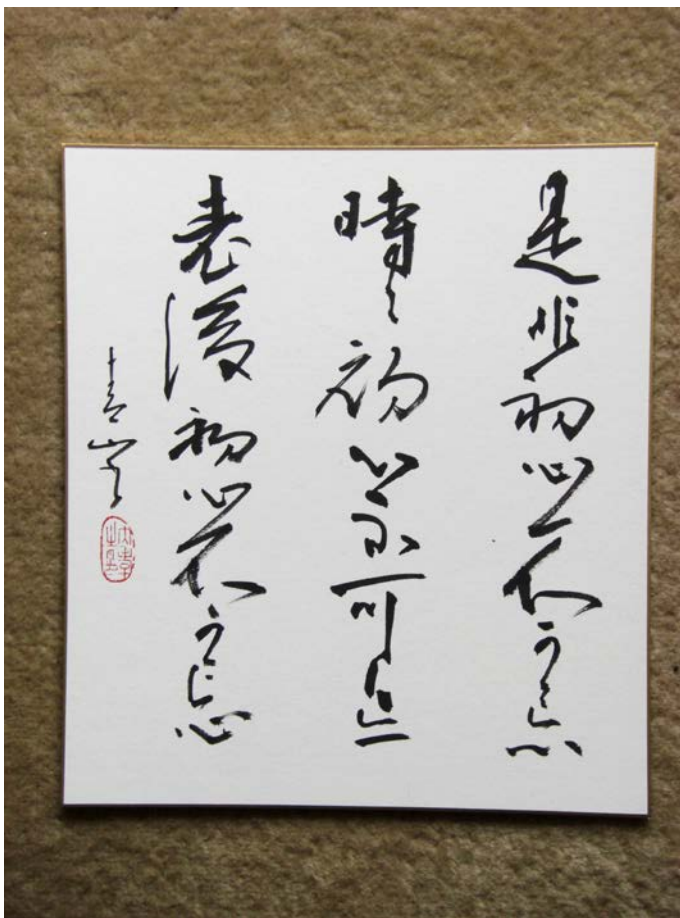 是非初心不可忘
時々初心不可忘
老後初心不可忘